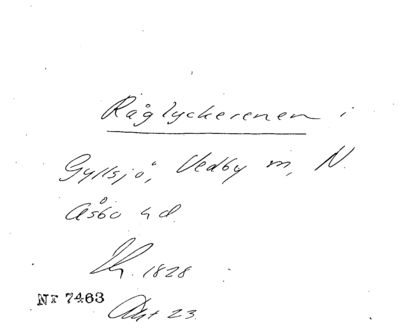 Råglyckerenen i
Gyllsjö, Vedby m, N.
Åsbo hd
1828
Nr 7463
Akt 23.